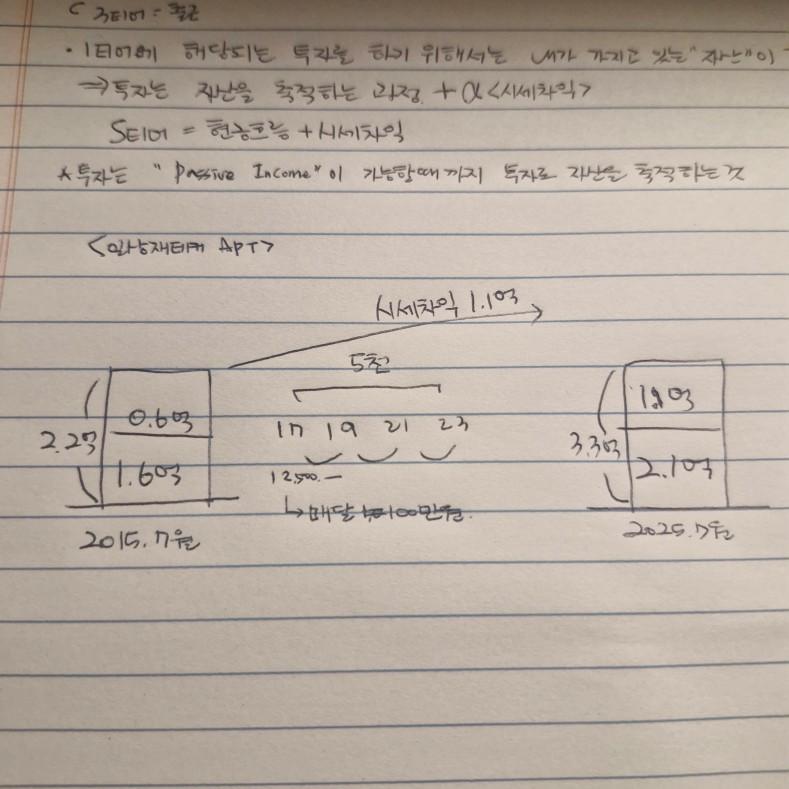 3티어 = 출근
· 1티어에 해당되는 투자를 하기 위해서는 내가 가지고 있는 "자산"이
⇒ 투자는 자산을 축적하는 과정 + α <시세차익>
S티어 = 현금흐름 + 시세차익
* 투자는 "Passive Income"이 가능할때 까지 투자로 자산을 축적하는 것
APT>
시세차익 1.1억
5천
2.2억
0.6억
1.6억
17 19 21 23
12,500.—
↳ 매달 100만원.
2015. 7월
3.3억
2.1억
2025. 7월